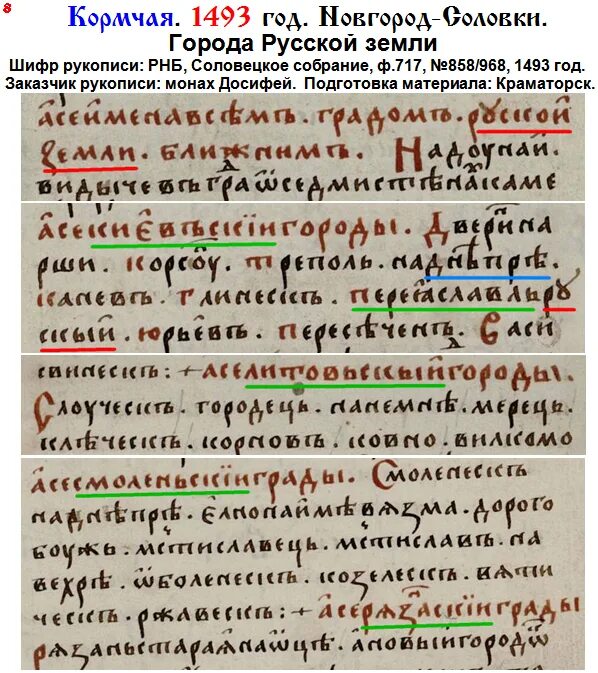 8
Кормчая. 1493 год. Новгород-Соловки.
Города Русской земли
Шифр рукописи: РНБ, Соловецкое собрание, ф.717, №858/968, 1493 год.
Заказчик рукописи: монах Досифей. Подготовка материала: Краматорск.
а̑сеименавсѣмъ. градомъ. рꙋской
земли. ближнимъ. Надоунай.
видычевъгра́ѿседмистѣна̑каме
а̑секиевъскїигороды. Двери̑на
рши. корсоу̑. треполь. наднѣпрѣ.
каневъ. глинескъ. пере̑аславльрꙋ
скый. юрьевъ. пересѣченъ. Васи
свинескъ:+аселитовьскыйгороды.
Слоуческъ. городець. нанемнѣ. мерець.
клѣческъ. корновъ. ковно. вилкомо
а̑сесмоленьскїиграды. Смоленескъ
наднѣпрѣ. вязма. дорого
боужь. мстиславець. мстиславль. на
вехрѣ. ѿболенескъ. козелескъ. вяти
ческъ. ржавескъ:+асерязаⷩскїиграды
рязаньстараянаѡцѣ. ановыйгородѿ